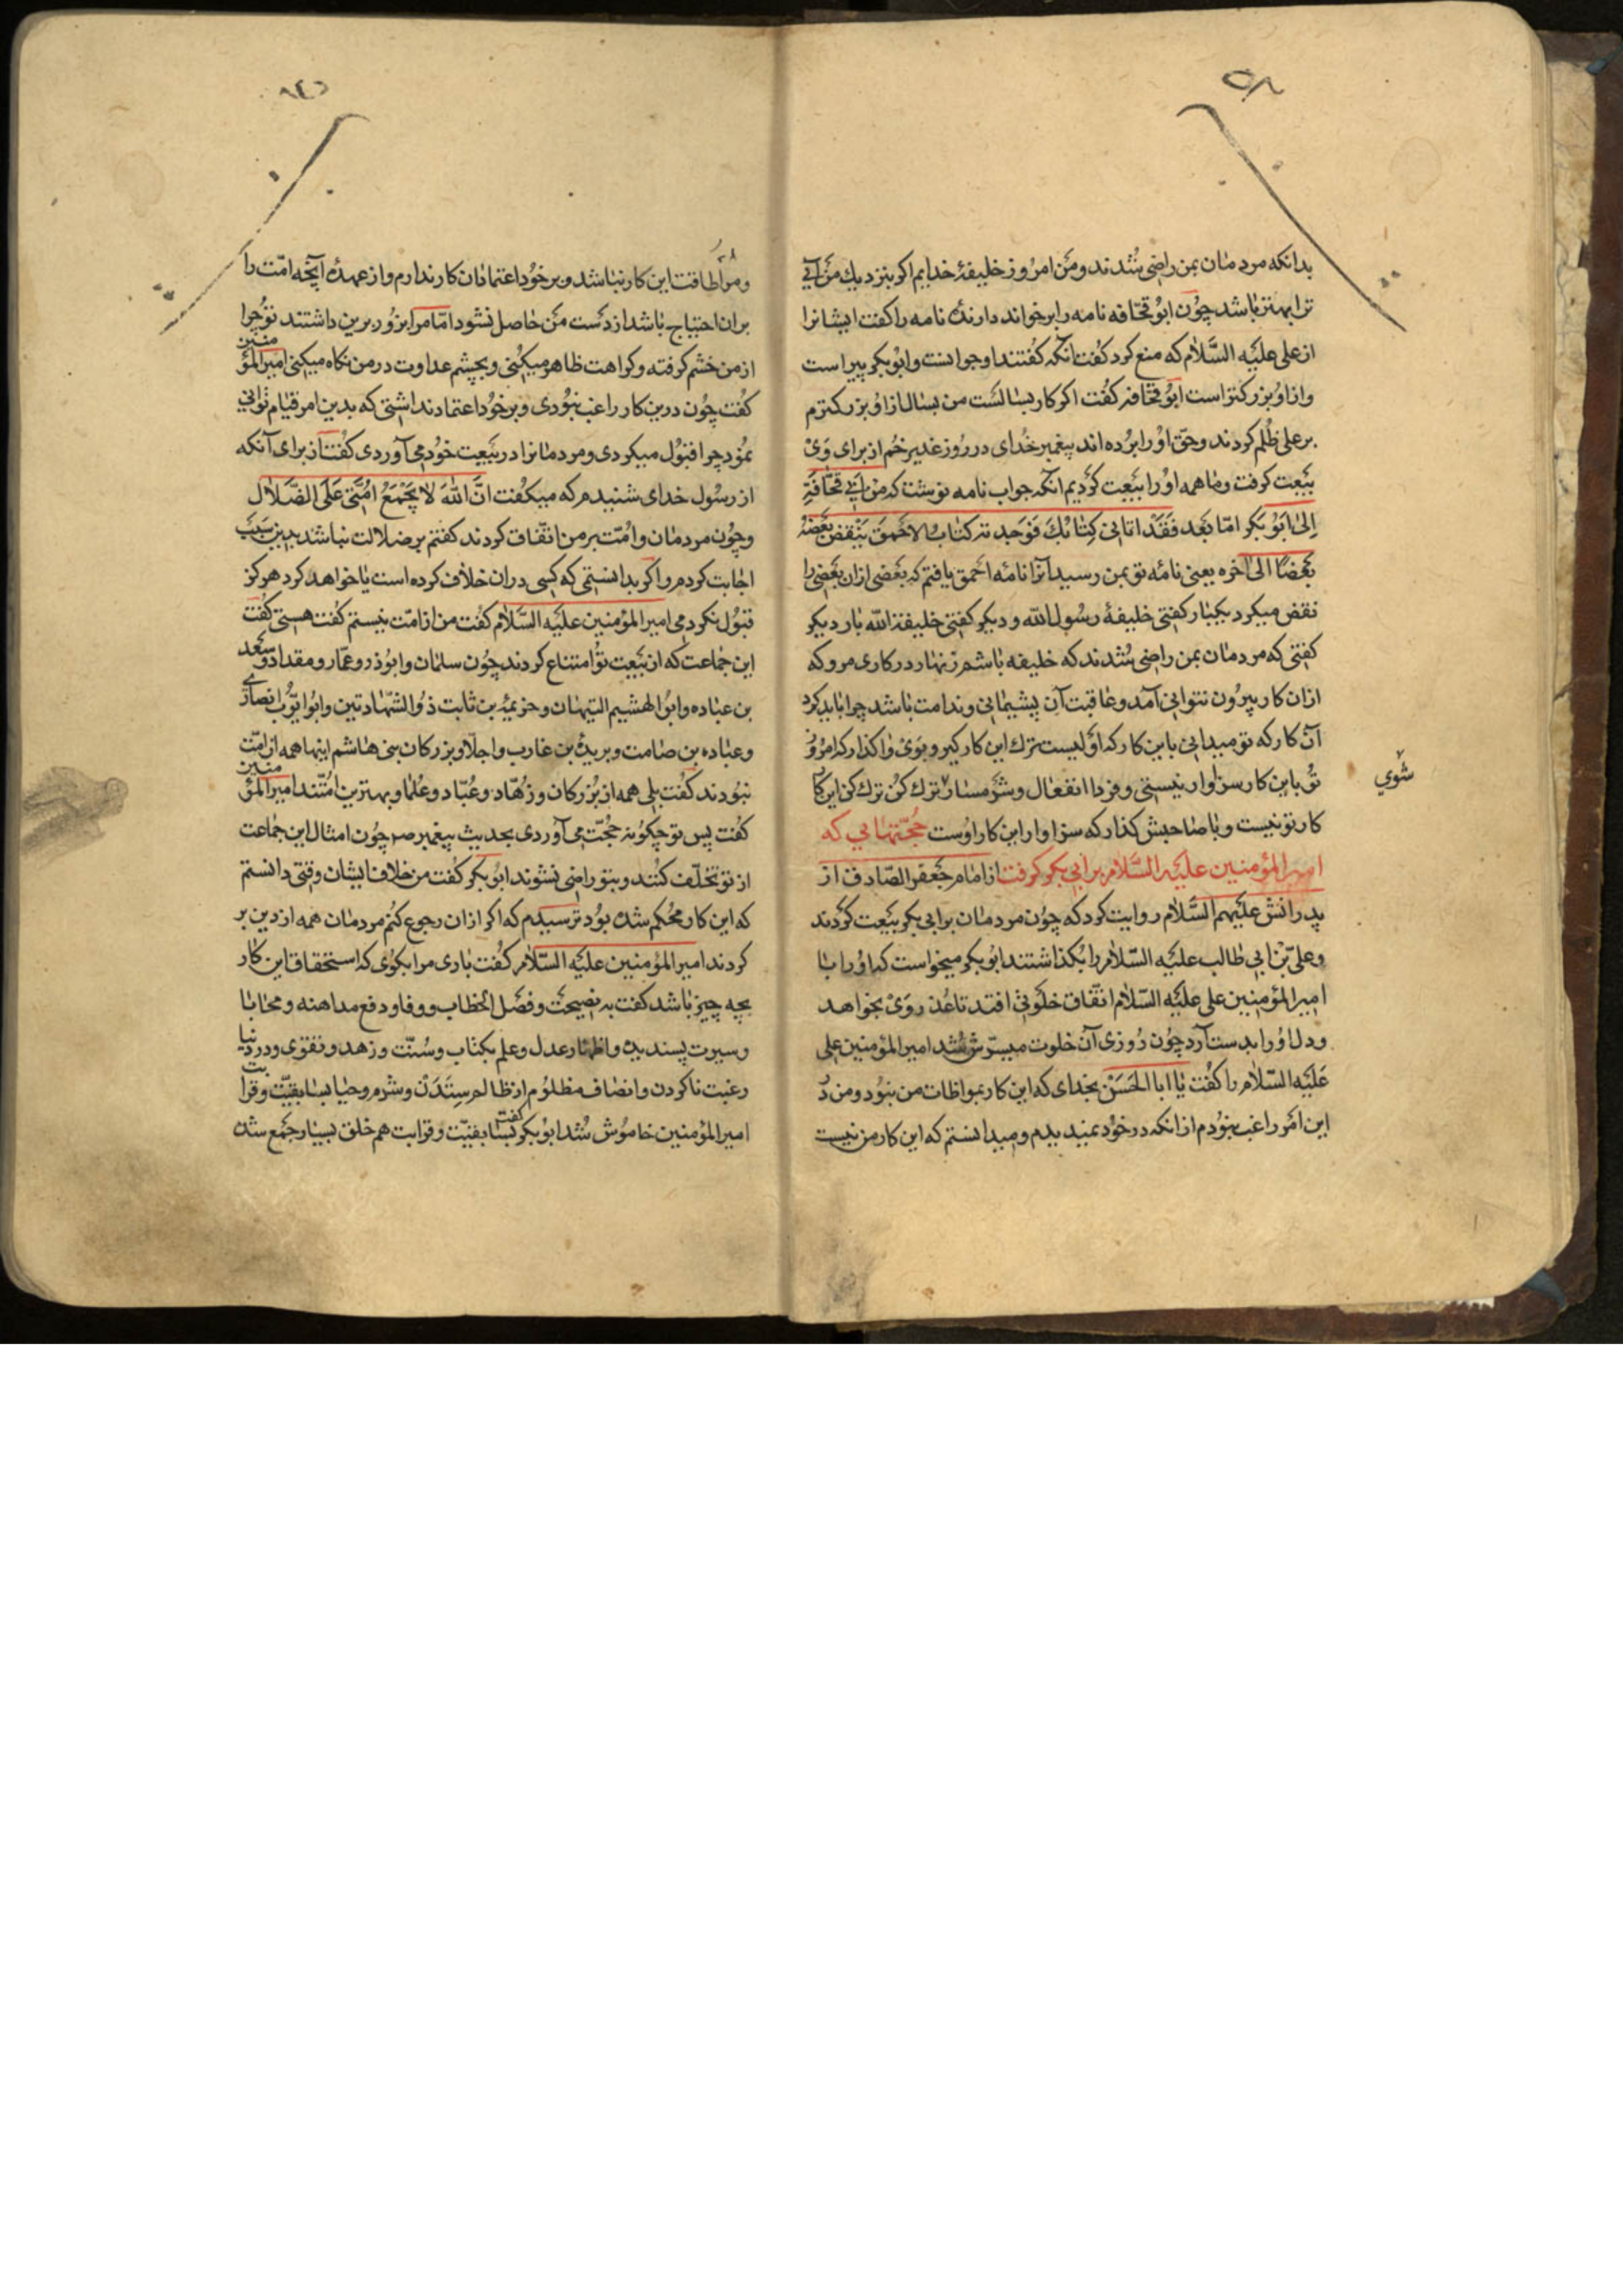 بدانکه مردمان بمن راضی شدند ومن امروز خلیفهٔ خدایم اکر بنزدیك من آیی
ترا بهتر باشد چون ابو قحافه نامه را برخواند دارندهٔ نامه را کفت ایشانرا
از علی علیه السلام که منع کرد کفت آنکه کفتند او جوانست وابو بکر پیر است
واز او بزرکتر است ابو قحافه کفت اکر کار بسالست من بسال از او بزرکترم
بر علی ظلم کردند وحق او را برده اند پیغمبر خدای در روز غدیر خم از برای وی
بیعت کرفت وما همه او را بیعت کردیم آنکه جواب نامه نوشت که من ابی قحافة
الی ابو بکر اما بعد فقد اتانی کتابك فوجدته کتاب الاحمق ینقض بعضه
بعضا الی آخره یعنی نامهٔ تو بمن رسید آنرا نامهٔ احمق یافتم که بعضی ازان بعضی را
نقض میکرد یکبار کفتی خلیفهٔ رسول الله ودیکر کفتی خلیفة الله بار دیکر
کفتی که مردمان بمن راضی شدند که خلیفه باشم زنهار در کاری مرو که
ازان کار بیرون نتوانی آمد وعاقبت آن پشیمانی وندامت باشد چرا باید کرد
آن کار که تو میدانی باین کار که اولیست ترك این کار کیر وبوی واکذار که امروز
تو باین کار سزاوار نیستی وفردا انفعال وشرمسار ترك کن ترك کن این کار
شوی
کار تو نیست وبا صاحبش کذار که سزاوار این کار اوست حجتهایی که
امیر المؤمنین علیه السلام بر ابی بکر کرفت از امام جعفر الصادق از
پدرانش علیهم السلام روایت کرد که چون مردمان بر ابی بکر بیعت کردند
وعلی بن ابی طالب علیه السلام را بکذاشتند ابو بکر میخواست که او را با
امیر المؤمنین علی علیه السلام اتفاق خلوتی افتد تا عذر وی بخواهد
ودل او را بدست آرد چون روزی آن خلوت میسرش شد امیر المؤمنین علی
علیه السلام را کفت یا ابا الحسن بخدای که این کار بمواطات من نبود ومن در
این امر راغب نبودم از انکه در خود نمیدیدم ومیدانستم که این کار من نیست
ومرا طاقت این کار نباشد وبر خود اعتماد ان کار ندارم واز عهدهٔ آنچه امت را
بران احتیاج باشد از دست من حاصل نشود اما مرا بزور برین داشتند تو چرا
از من خشم کرفته وکراهت ظاهر میکنی وبچشم عداوت در من نکاه میکنی امیر المؤمنین
کفت چون درین کار راغب نبودی وبر خود اعتماد نداشتی که بدین امر قیام توانی
نمود چرا قبول میکردی ومردمانرا در بیعت خود می آوردی کفت از برای آنکه
از رسول خدای شنیدم که میکفت ان الله لا یجمع امتی علی الضلال
وچون مردمان وامت بر من اتفاق کردند کفتم بر ضلالت نباشد بدین سبب
اجابت کردم واکر بدانستمی که کسی دران خلاف کرده است یا خواهد کرد هرکز
قبول نکردمی امیر المؤمنین علیه السلام کفت من از امت نیستم کفت هستی کفت
این جماعت که از بیعت تو امتناع کردند چون سلمان وابوذر وعمار ومقداد وسعد
بن عباده وابو الهشیم التیهان وخزیمة بن ثابت ذو الشهادتین وابو ایوب انصاری
وعباده بن صامت وبریدة بن عازب واجلا وبزرکان بنی هاشم اینها همه از امت
نبودند کفت بلی همه از بزرکان وزهاد وعباد وعلما وبهترین امتند امیر المؤمنین
کفت پس تو چکونه حجت می آوردی بحدیث پیغمبر ص چون امثال این جماعت
از تو تخلف کنند وبتو راضی نشوند ابو بکر کفت من خلاف ایشان وقتی دانستم
که این کار محکم شده بود ترسیدم که اکر ازان رجوع کنم مردمان همه از دین بر
کردند امیر المؤمنین علیه السلام کفت باری مرا بکوی که استحقاق این کار
بچه چیز باشد کفت به نصیحت وفصل الخطاب ووفا ودفع مداهنه ومحابا
وسیرت پسندیده واظهار عدل وعلم بکتاب وسنت وزهد وتقوی ودر دنیا
رغبت ناکردن وانصاف مظلوم از ظالم ستدن وشرم وحیا بسابقیت وقرابت
امیر المؤمنین خاموش شد ابو بکر کفت بسابقیت وقرابت هم خلق بسیار جمع شده